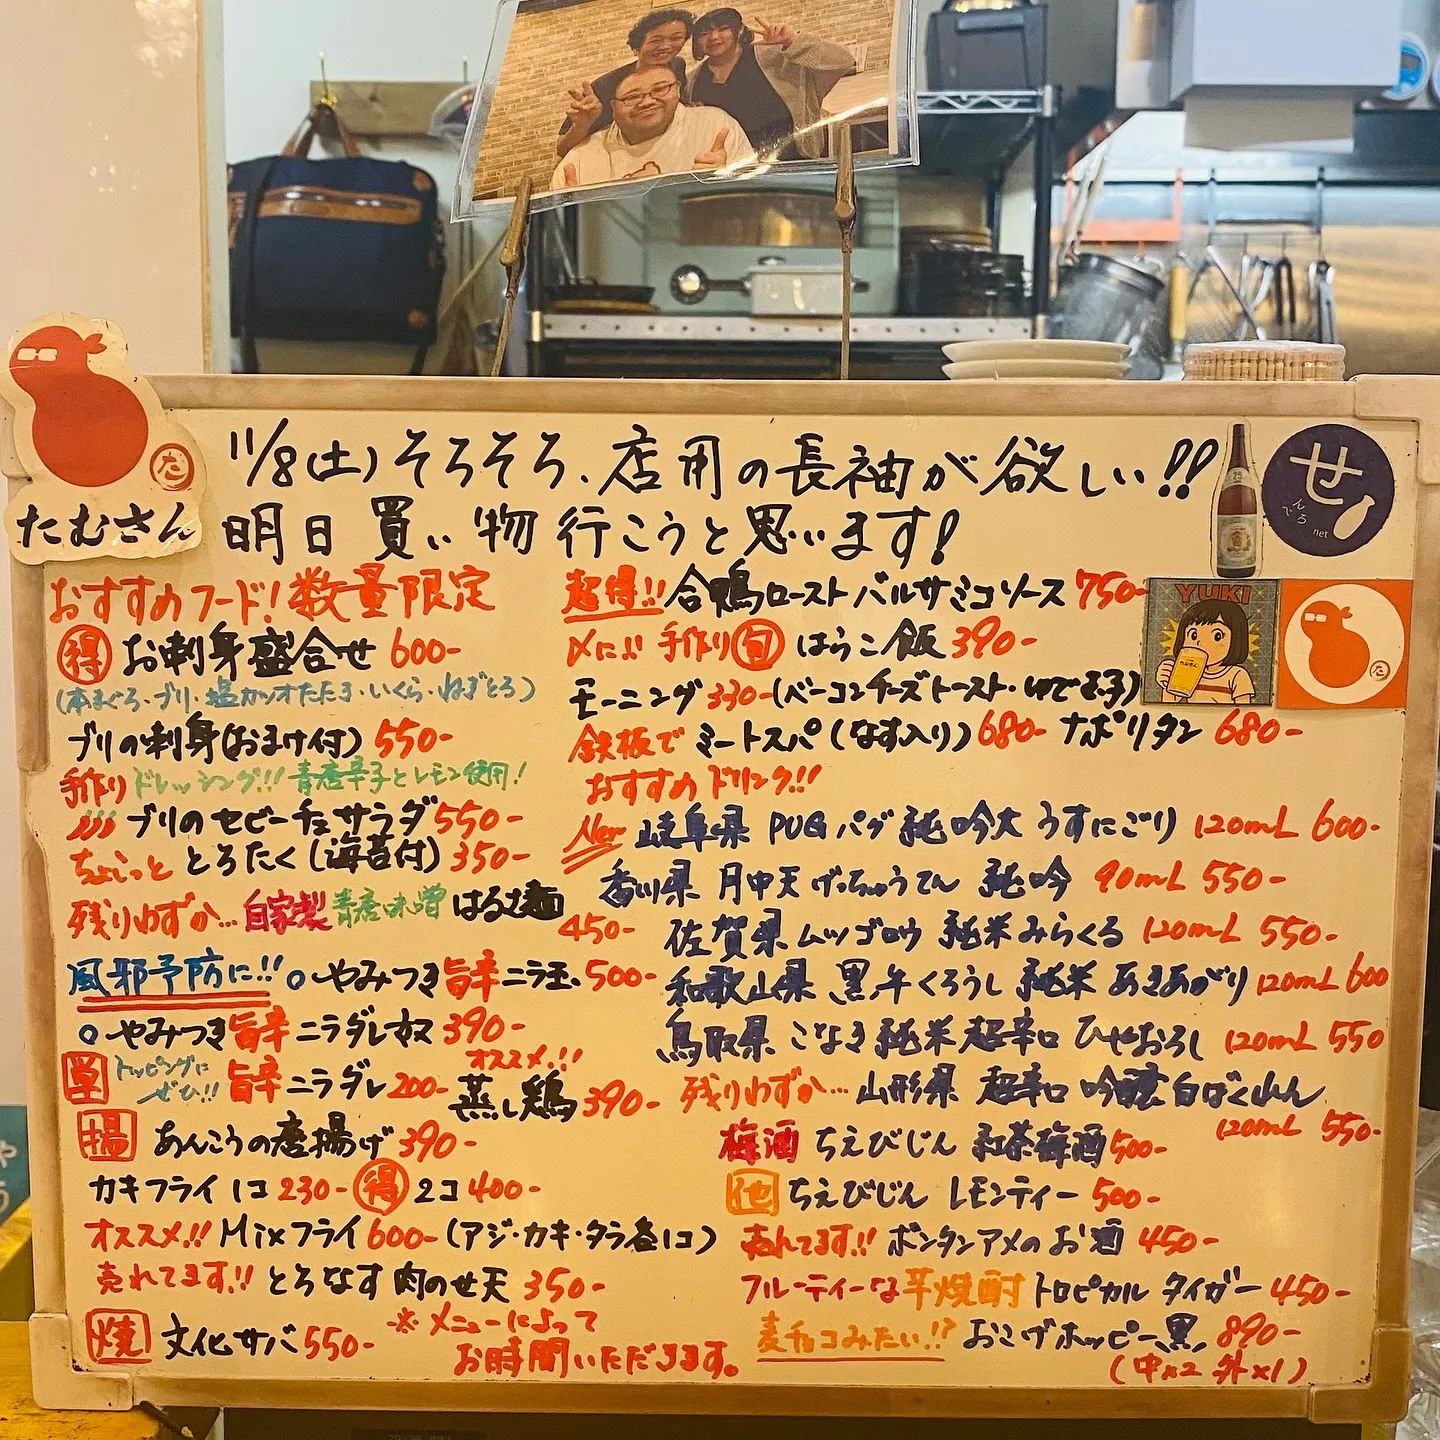 11/8(土)そろそろ、店用の長袖が欲しい!!
明日買い物行こうと思います!
たむさん
た
せ
んでろ
net
YUKI
おすすめフード!数量限定
得 お刺身盛合せ 600-
(本まぐろ・ブリ・塩カツオたたき・いくら・ねぎとろ)
ブリの刺身(おまけ付) 550-
手作りドレッシング!!青唐辛子とレモン使用!
ブリのセビーチェサラダ 550-
ちょこっと とろたく(海苔付) 350-
残りわずか… 自家製 青唐味噌 はるさ麺
450-
風邪予防に!! 。やみつき旨辛ニラ玉 500-
。やみつき旨辛ニラダレ奴 390-
単 トッピングに
ぜひ!! 旨辛ニラダレ 200-
オススメ!!
蒸し鶏 390-
揚 あんこうの唐揚げ 390-
カキフライ 1コ 230- 得 2コ 400-
オススメ!! Mixフライ 600-(アジ・カキ・タラ各1コ)
売れてます!! とろなす肉のせ天 350-
焼 文化サバ 550-
※メニューによって
お時間いただきます。
超得!! 合鴨ローストバルサミコソース 750-
〆に!! 手作り 旬 はらこ飯 390-
モーニング 330-(ベーコンチーズトースト・ゆで玉子)
鉄板で ミートスパ(なす入り) 680- ナポリタン 680-
おすすめドリンク!!
New 岐阜県 PUG パグ 純吟大 うすにごり 120mL 600-
香川県 月中天 げっちゅうてん 純吟 90mL 550-
佐賀県 ムツゴロウ 純米 みらくる 120mL 550-
和歌山県 黒牛 くろうし 純米 あきあがり 120mL 600
鳥取県 こなき 純米 超辛口 ひやおろし 120mL 550
残りわずか… 山形県 超辛口 吟醸 白ばくれん
120mL 550-
梅酒 ちえびじん 紅茶梅酒 500-
他 ちえびじん レモンティー 500-
売れてます!! ボンタンアメのお酒 450-
フルーティーな芋焼酎 トロピカル タイガー 450-
麦チョコみたい!? おこげホッピー黒 890-
(中×2 外×1)